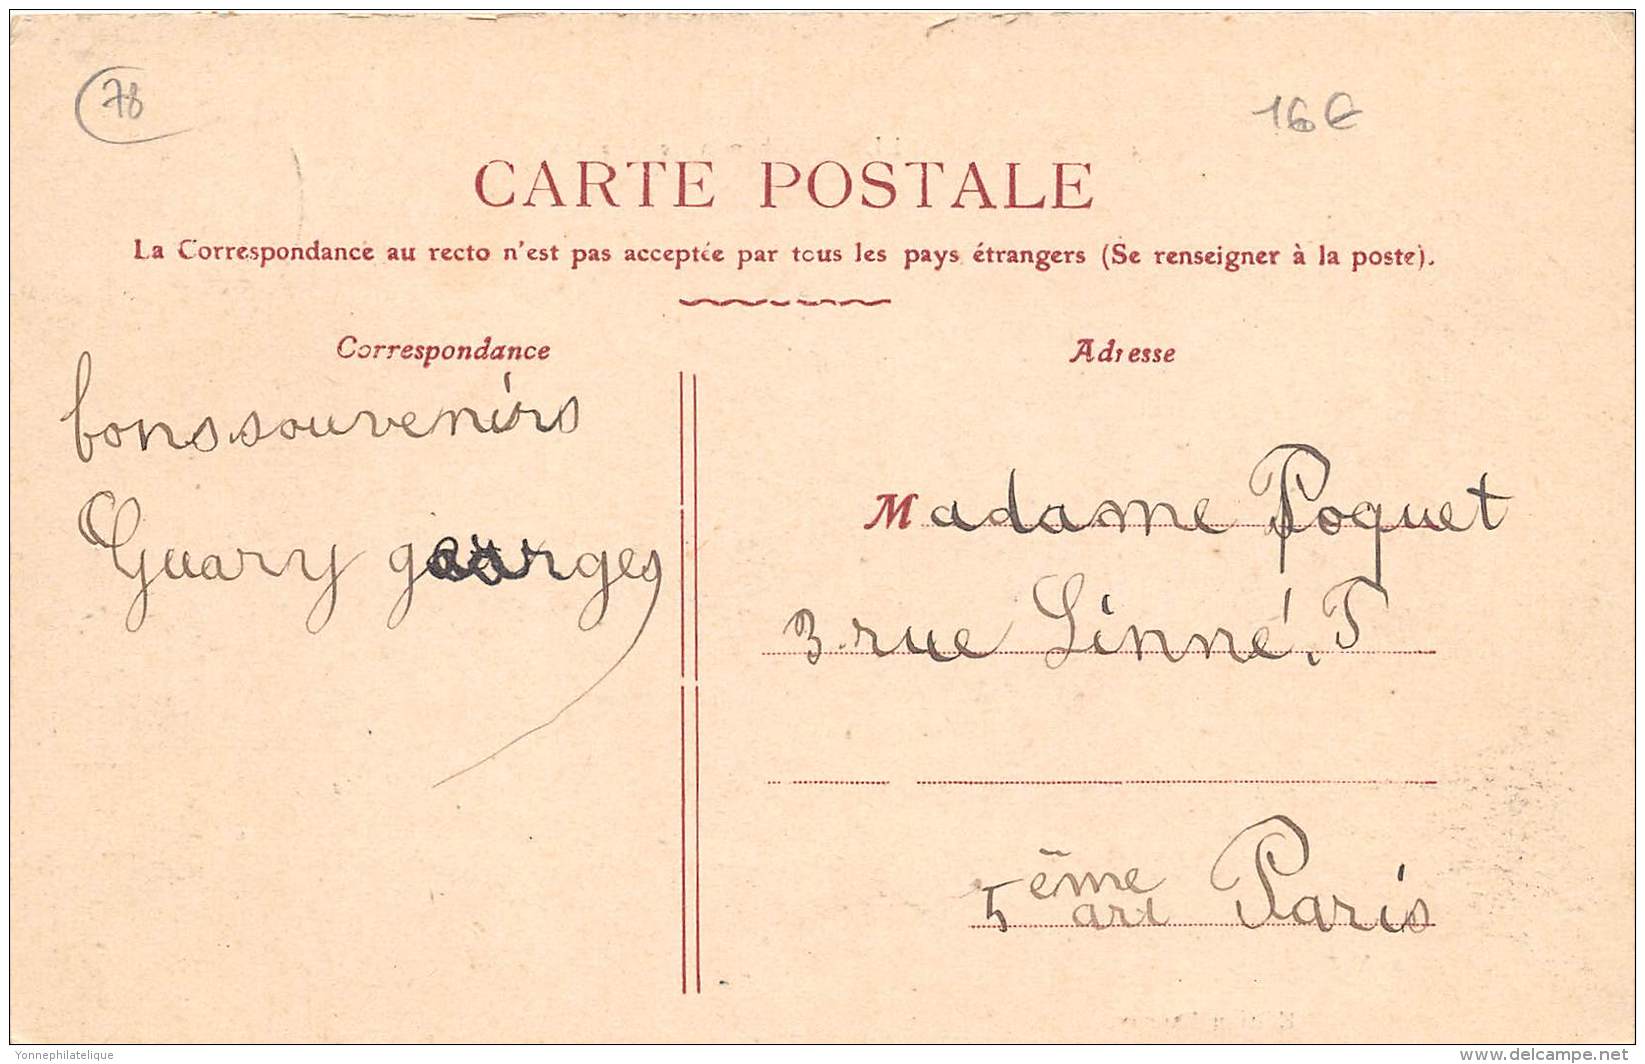 78
16€
CARTE POSTALE
La Correspondance au recto n'est pas acceptée par tous les pays étrangers (Se renseigner à la poste).
Correspondance
bons souvenirs
Guary georges
Adresse
Madame Poquet
3 rue Linné. P
5ème art Paris
Yonnephilatelique
www.delcampe.net